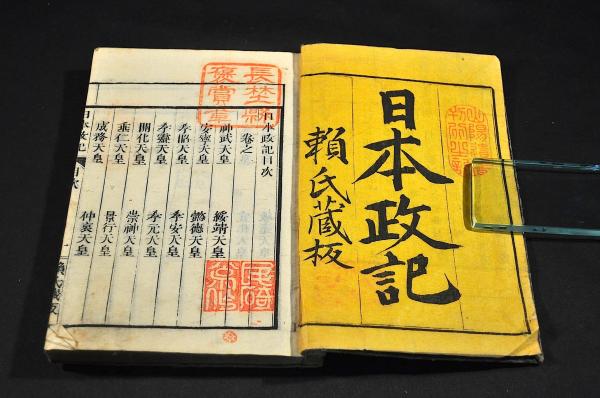 日本政記
賴氏蔵板
日本政記目次
卷之
神武天皇 綏靖天皇
安寧天皇 懿德天皇
孝昭天皇 孝安天皇
孝靈天皇 孝元天皇
開化天皇 崇神天皇
垂仁天皇 景行天皇
成務天皇 仲哀天皇
日本政記 目次 一 賴氏藏板
長埜縣
褒賞章